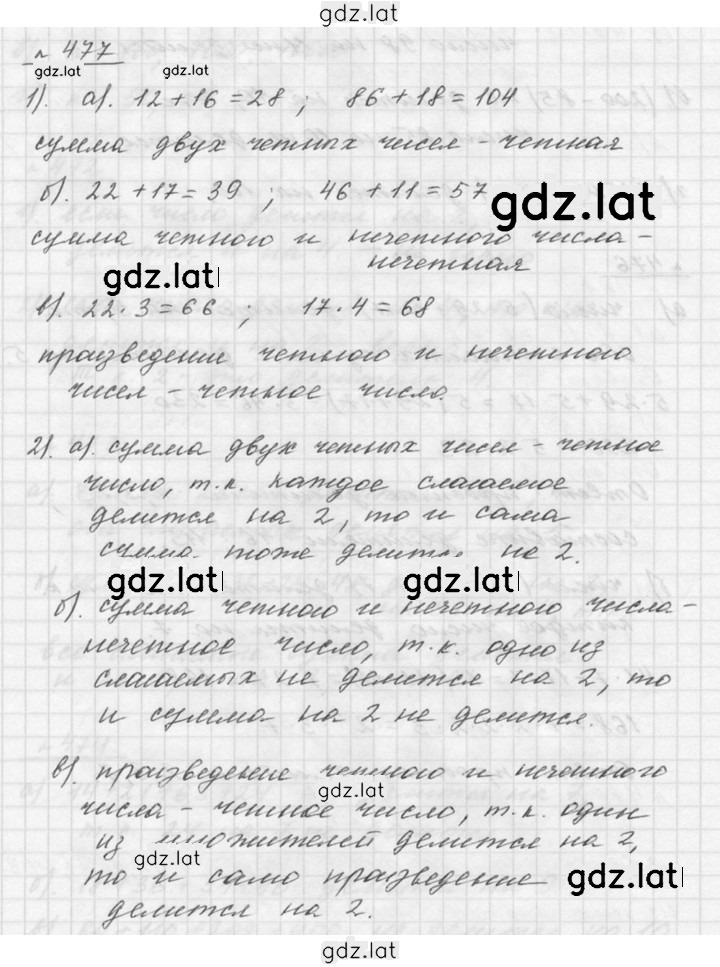 gdz.lat
№ 477
gdz.lat gdz.lat
1). а). 12 + 16 = 28 ; 86 + 18 = 104
сумма двух четных чисел - четная
б). 22 + 17 = 39 ; 46 + 11 = 57
gdz.lat
сумма четного и нечетного числа -
нечетная
gdz.lat
в). 22 · 3 = 66 ; 17 · 4 = 68
произведение четного и нечетного
чисел - четное число.
2). а). сумма двух четных чисел - четное
число, т.к. каждое слагаемое
делится на 2, то и сама
сумма тоже делится на 2.
gdz.lat gdz.lat
б). сумма четного и нечетного числа -
нечетное число, т.к. одно из
слагаемых не делится на 2, то
и сумма на 2 не делится.
в). произведение четного и нечетного
gdz.lat
числа - четное число, т.к. один
из множителей делится на 2,
gdz.lat
то и само произведение
gdz.lat
делится на 2.
gdz.lat